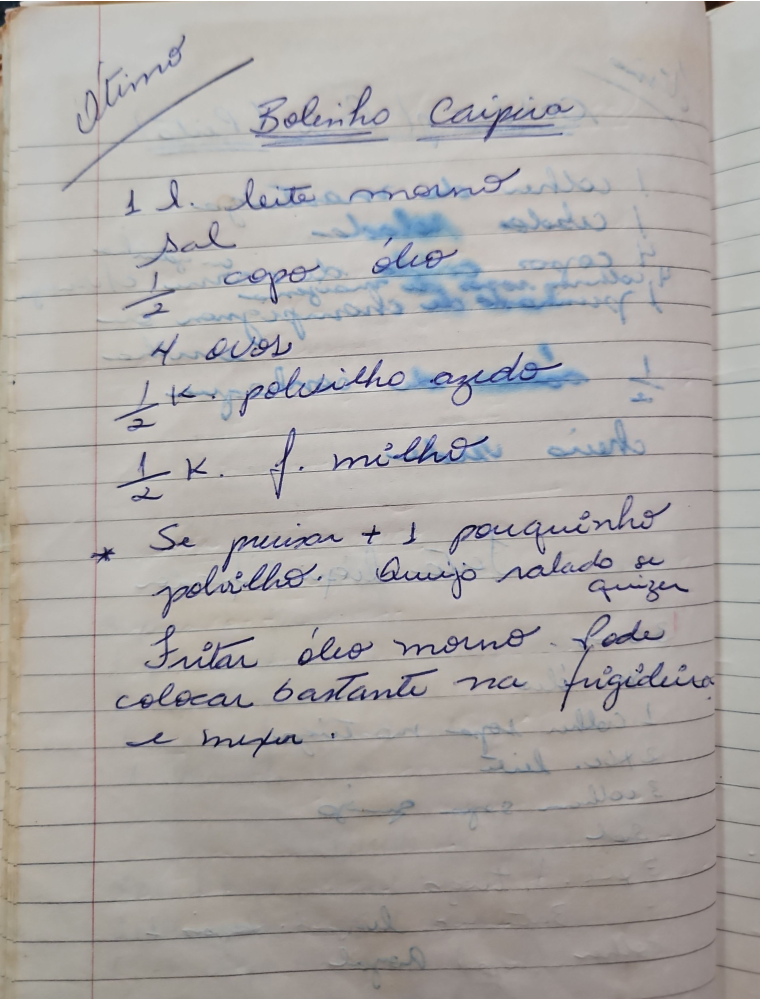 Ótimo
Bolinho Caipira
1 l. leite morno
sal
1/2 copo óleo
4 ovos
1/2 K. polvilho azedo
1/2 K. f. milho
* Se precisar + 1 pouquinho
polvilho. Queijo ralado se
quizer
Fritar óleo morno. Pode
colocar bastante na frigideira
e mexer.